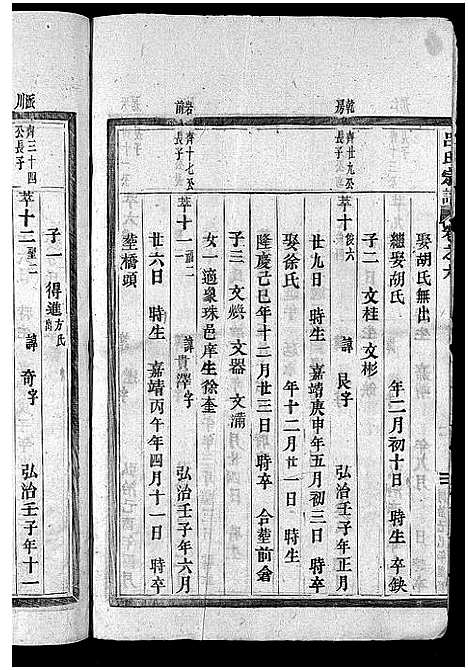 呂氏宗譜
娶胡氏無出
繼娶胡氏 年二月初十日 時生 卒缺
子二 文桂 文彬
乾房 齊廿九公長子
萃十 後六 諱 良字 弘治壬子年正月
廿九日 時生 嘉靖庚申年五月初三日 時卒
娶徐氏 年十二月廿一日 時生
隆慶己巳年十二月廿三日 時卒 合塟前倉
子三 文煥 文器 文蒲
女一 適象珠邑庠生徐奎
岩前 齊十七公長子
萃十一 諱 貴澤字 弘治壬子年六月
廿六日 時生 嘉靖丙午年四月十一日 時卒
塟橋頭
派川 齊三十四公長子
萃十二 聖二 諱 奇字 弘治壬子年十一
子一 得進 方氏